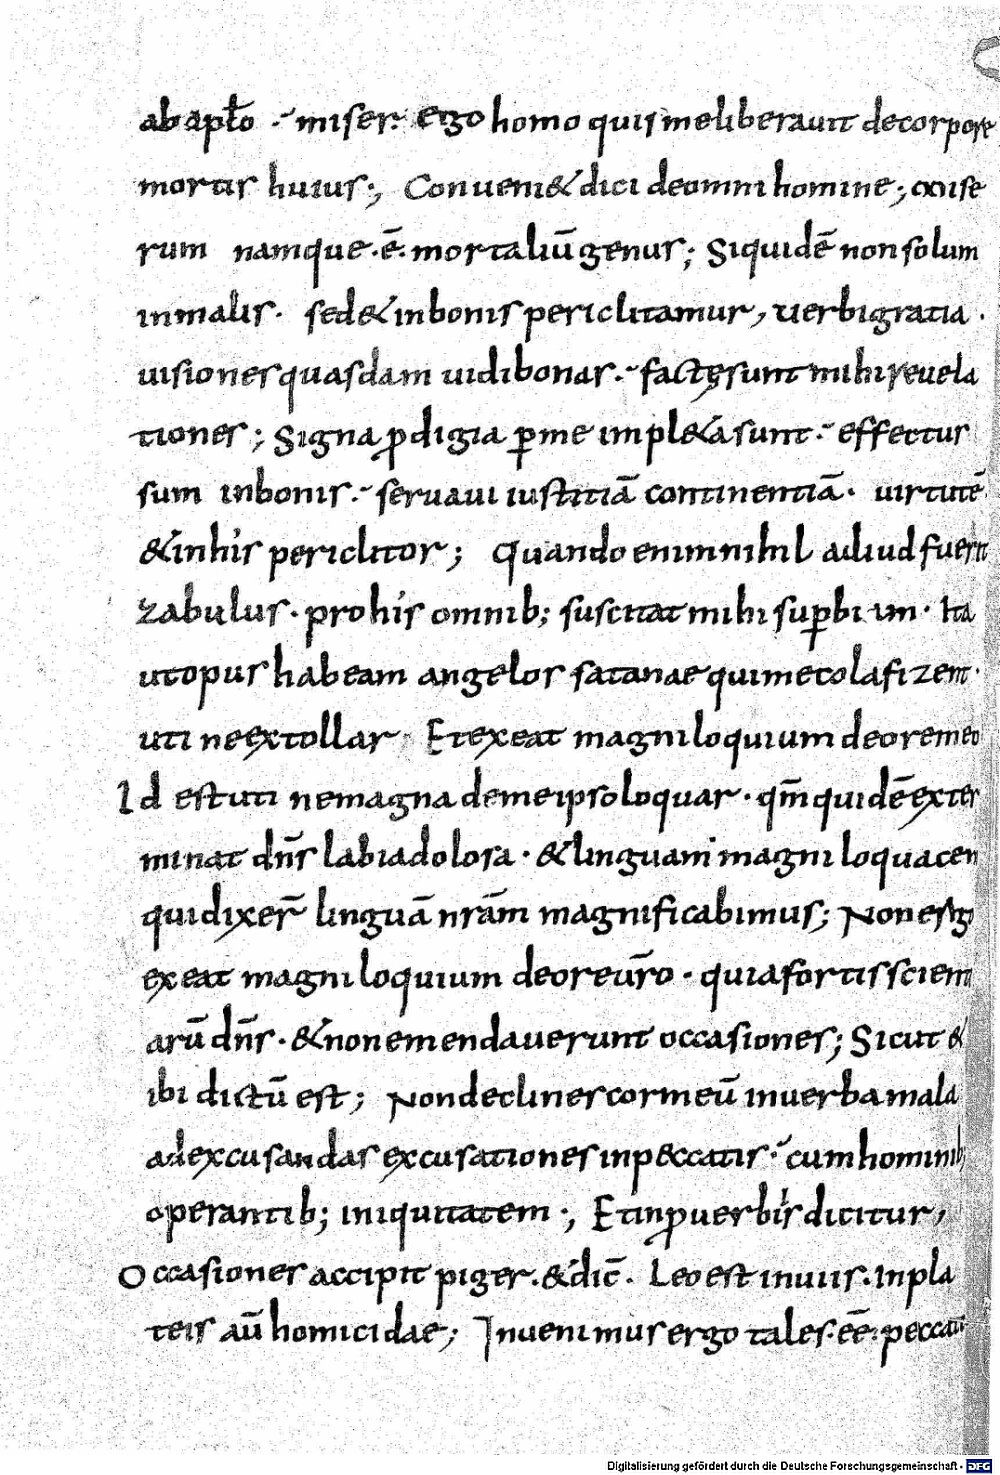 ab aptło · miser · ergo homo quis me liberauit de corpore
mortis huius ·, Conuenit & dici de omni homine ; mise
rum namque · ē · mortaliū genus ; Siquidē non solum
in malis · sed & in bonis periclitamur, uerbi gratia ·
uisiones quasdam uidi bonas · factę sunt mihi reuela
tiones ; Signa ꝓdigia ꝑ me impl&a sunt · effectus
sum in bonis · seruaui iustitiā continentiā · uirtutē
& in his periclitor ; Quando enim nihil aliud fuerit
zabulus · pro his omnib; suscitat mihi suꝑbiam · Ita
ut opus habeam angelos satanae qui me colafizent ·
uti ne extollar · Et exeat magniloquium de ore meo
Id est uti ne magna de me ipso loquar · qm̄ quidē exter
minat dn̄s labia dolosa · & linguam magniloquacem
qui dixer̄ linguā nrām magnificabimus ; Non ergo
exeat magniloquium de ore ur̄o · quia fortis scienti
arū dn̄s · & non emendauerunt occasiones ; Sicut &
ibi dictū est ; Non declines cor meū in uerba mala
ad excusandas excusationes in peccatis · cum hominib;
operantib; iniquitatem ·, Et in ꝓuerbiis dicitur,
Occasiones accipit piger · & dic̄ · Leo est in uiis · In pla
teis aū homicidae ; Inuenimus ergo tales · eē · peccati
Digitalisierung gefördert durch die Deutsche Forschungsgemeinschaft · DFG